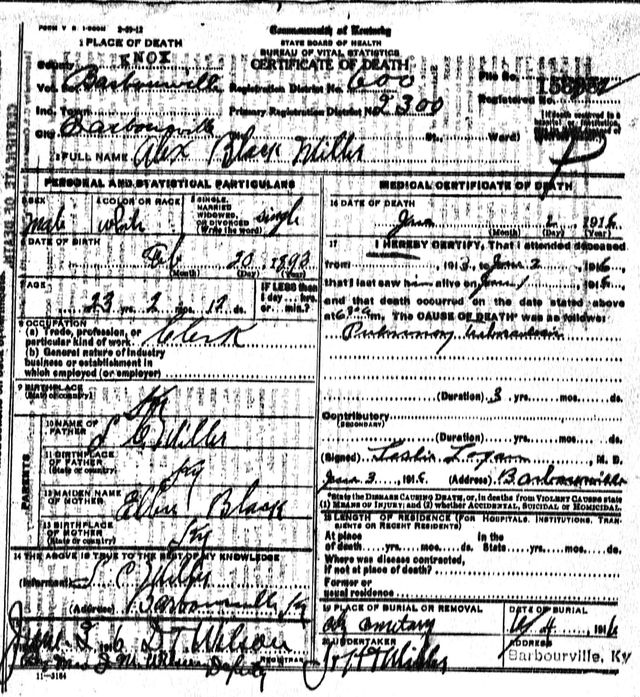 FORM V. S. 1-500M 2-09-12
Commonwealth of Kentucky
STATE BOARD OF HEALTH
BUREAU OF VITAL STATISTICS
CERTIFICATE OF DEATH
1 PLACE OF DEATH
County KNOX
Barbourville Registration District No. 600 File No.
Inc. Town Primary Registration District No. 2300 Registered No.
City Barbourville St., Ward)
2 FULL NAME Alex Black Miller
PERSONAL AND STATISTICAL PARTICULARS
3 SEX Male
4 COLOR OR RACE white
5 SINGLE, MARRIED WIDOWED, OR DIVORCED (Write the word) single
6 DATE OF BIRTH
Feb 20 1893
(Month) (Day) (Year)
7 AGE
23 yrs. 2 mos. 12 ds.
IF LESS than 1 day... hrs. or min.?
8 OCCUPATION
(a) Trade, profession, or particular kind of work Clerk
(b) General nature of industry business or establishment in which employed (or employer)
9 BIRTHPLACE
(State or country) Ky
PARENTS
10 NAME OF FATHER S C Miller
11 BIRTHPLACE OF FATHER (State or country) Ky
12 MAIDEN NAME OF MOTHER Black
13 BIRTHPLACE OF MOTHER (State or country) Ky
14 THE ABOVE IS TRUE TO THE BEST OF MY KNOWLEDGE
(Informant) S C Miller
(Address) Barbourville Ky
D T Wilson
REGISTRAR
Deputy
11-3184
MEDICAL CERTIFICATE OF DEATH
16 DATE OF DEATH
June 2 1916
(Month) (Day) (Year)
17 I HEREBY CERTIFY, That I attended deceased
from 1913, to June 2 1916
that I last saw him alive on June 1 1916
and that death occurred on the date stated above
at m. The CAUSE OF DEATH* was as follows:
Pulmonary tuberculosis
(Duration) 3 yrs. mos. ds.
Contributory
(SECONDARY)
(Duration) yrs. mos. ds.
(Signed) Leslie Logan M. D.
June 3 1916 (Address) Barbourville
*State the DISEASE CAUSING DEATH, or, in deaths from VIOLENT CAUSES state
(1) MEANS OF INJURY; and (2) whether ACCIDENTAL, SUICIDAL OR HOMICIDAL.
18 LENGTH OF RESIDENCE (FOR HOSPITALS, INSTITUTIONS, TRANSIENTS OR RECENT RESIDENTS)
At place of death yrs. mos. ds. In the State yrs. mos. ds.
Where was disease contracted,
if not at place of death?
Former or
usual residence
19 PLACE OF BURIAL OR REMOVAL
cemetery
DATE OF BURIAL
6/4 1916
20 UNDERTAKER
Miller
ADDRESS
Barbourville, Ky